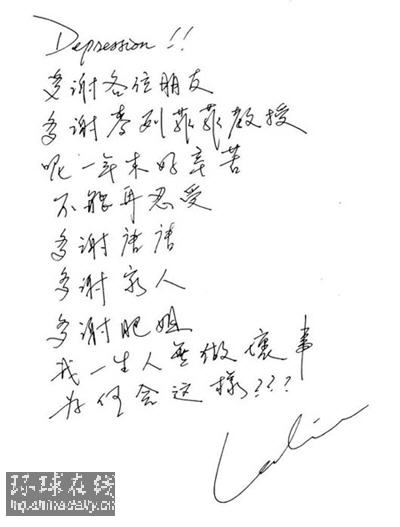 Depression!!
多谢各位朋友
多谢麦列菲菲教授
呢一年来好辛苦
不能再忍受
多谢唐唐
多谢家人
多谢肥姐
我一生人無做壞事
为何会这樣???
Leslie
环球在线